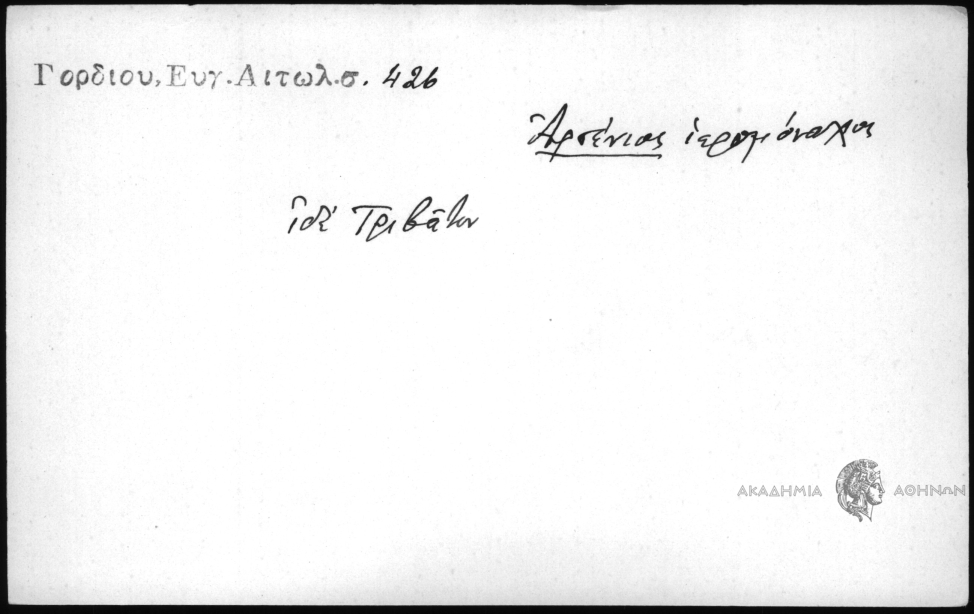 Γορδιου, Ευγ. Αιτωλ. σ. 426
Ἀρσένιος ἱερομόναχος
ἰδὲ Τριβᾶτον
ΑΚΑΔΗΜΙΑ ΑΘΗΝΩΝ